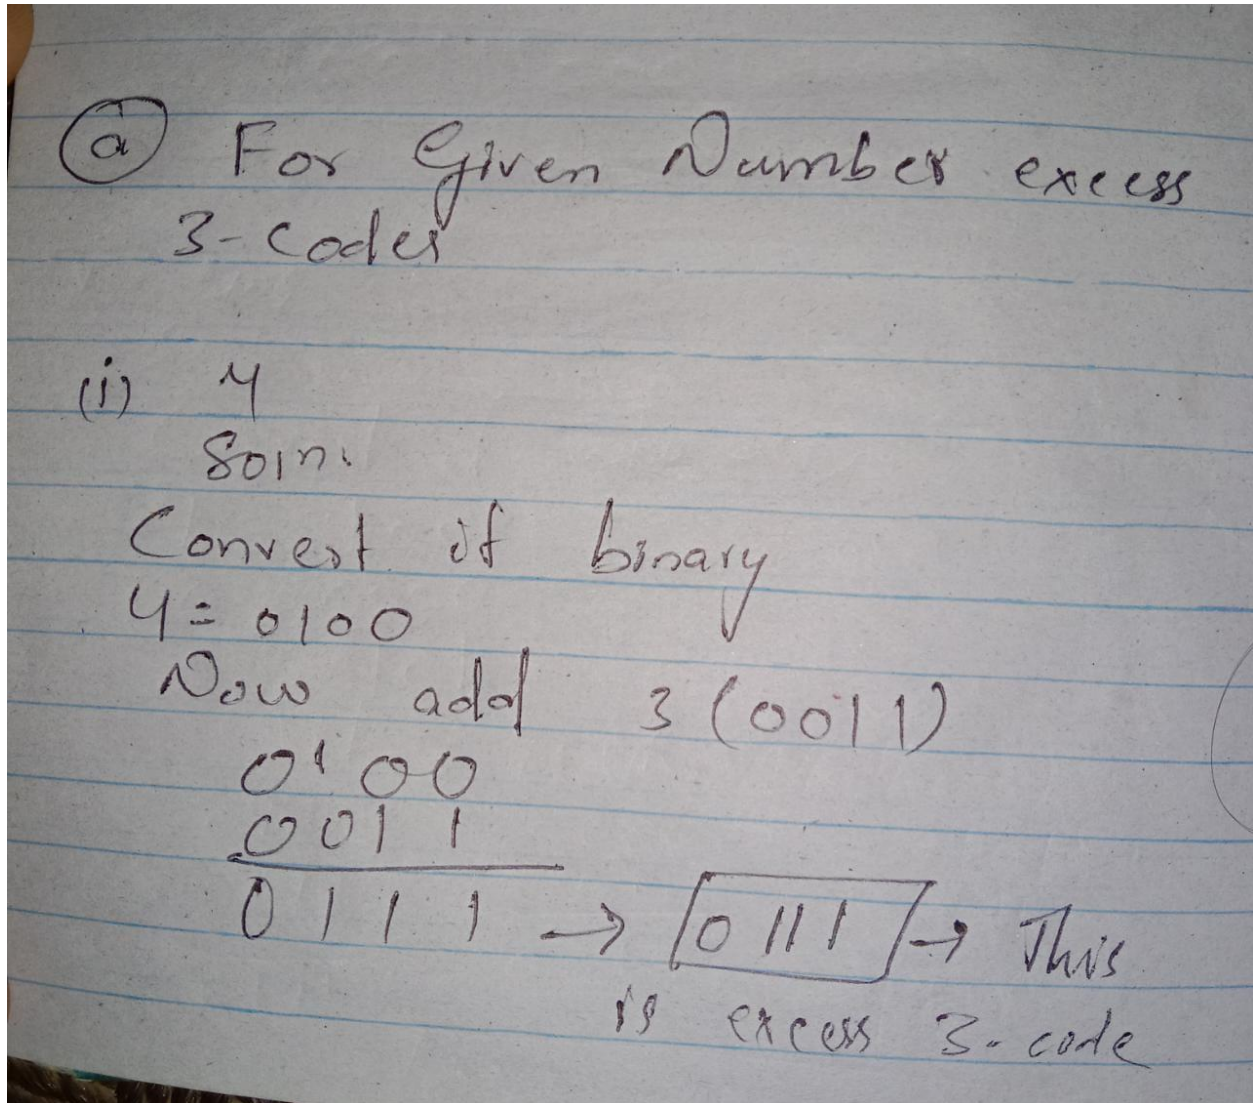 (a) For Given Number excess
3-Codes
(i) 4
Soln.
Convert it binary
4= 0100
Now add 3 (0011)
0100
0011
0111 → 0111 → This
is excess 3-code